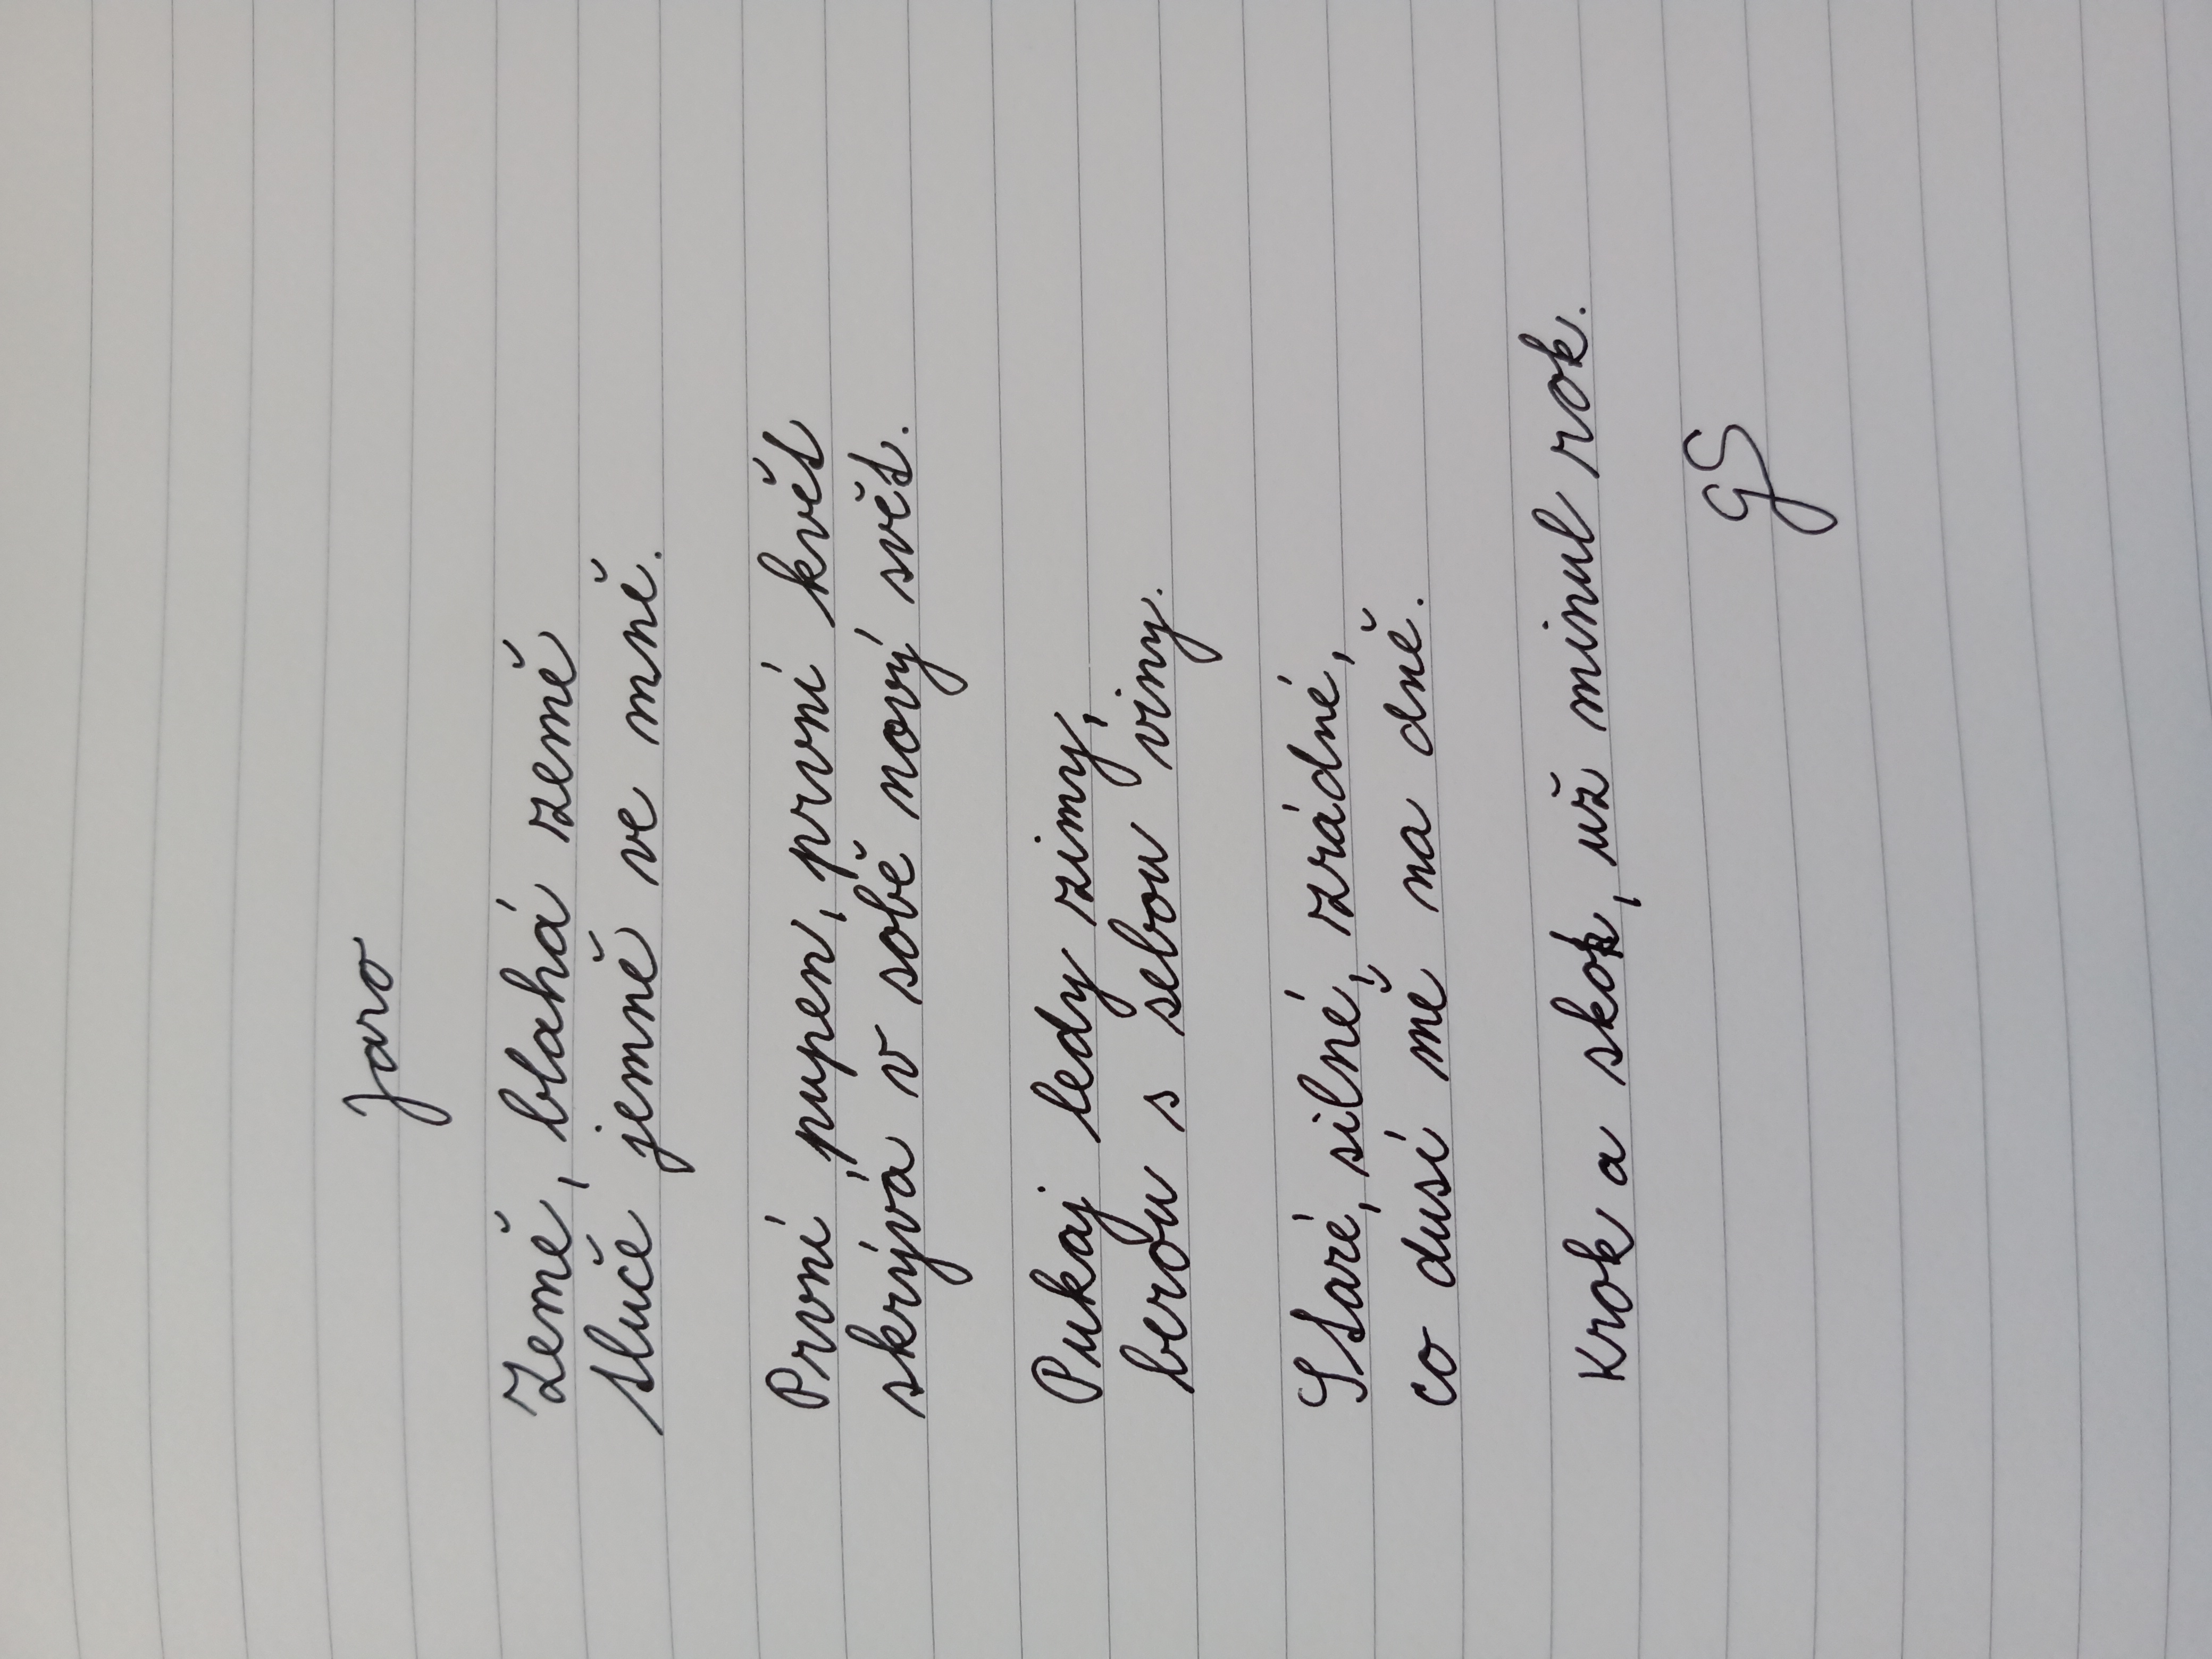 Jaro
Země, blahá země
tluče jemně ve mně.
První pupen, první květ
skrývá v sobě nový svět.
Pukaj ledy zimy,
berou s sebou viny.
Staré, silné, zrádné,
co dusí mě na dně.
Krok a skok, už minul rok.
GS